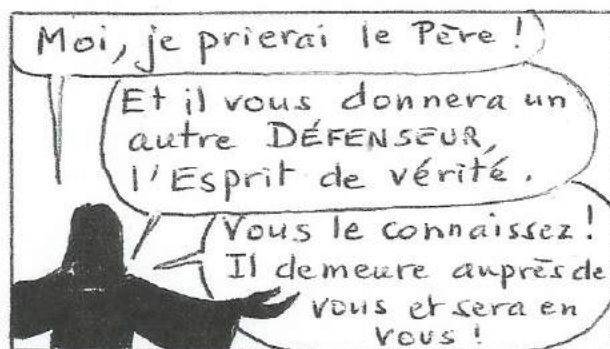 Moi, je prierai le Père !
Et il vous donnera un
autre DÉFENSEUR,
l'Esprit de vérité.
Vous le connaissez !
Il demeure auprès de
vous et sera en
vous !